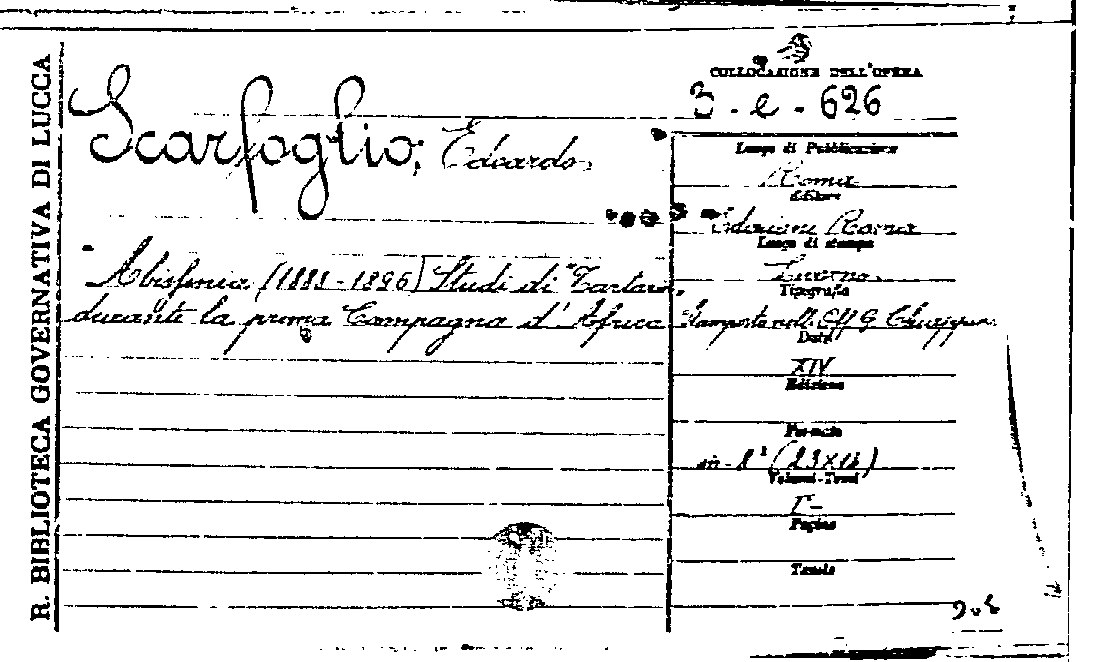 R. BIBLIOTECA GOVERNATIVA DI LUCCA
COLLOCAZIONE DELL'OPERA
3 - e - 626
Scarfoglio, Edoardo.
Luogo di Pubblicazione
Roma
Editore
Edizioni Roma
Luogo di stampa
Tipografia
Abissinia (1888-1896) Studi di "Tartarin"
durante la prima Campagna d'Africa
Data
XIV
Edizione
Formato
in-8° (23x16)
Volumi-Tomi
Pagine
Tavole